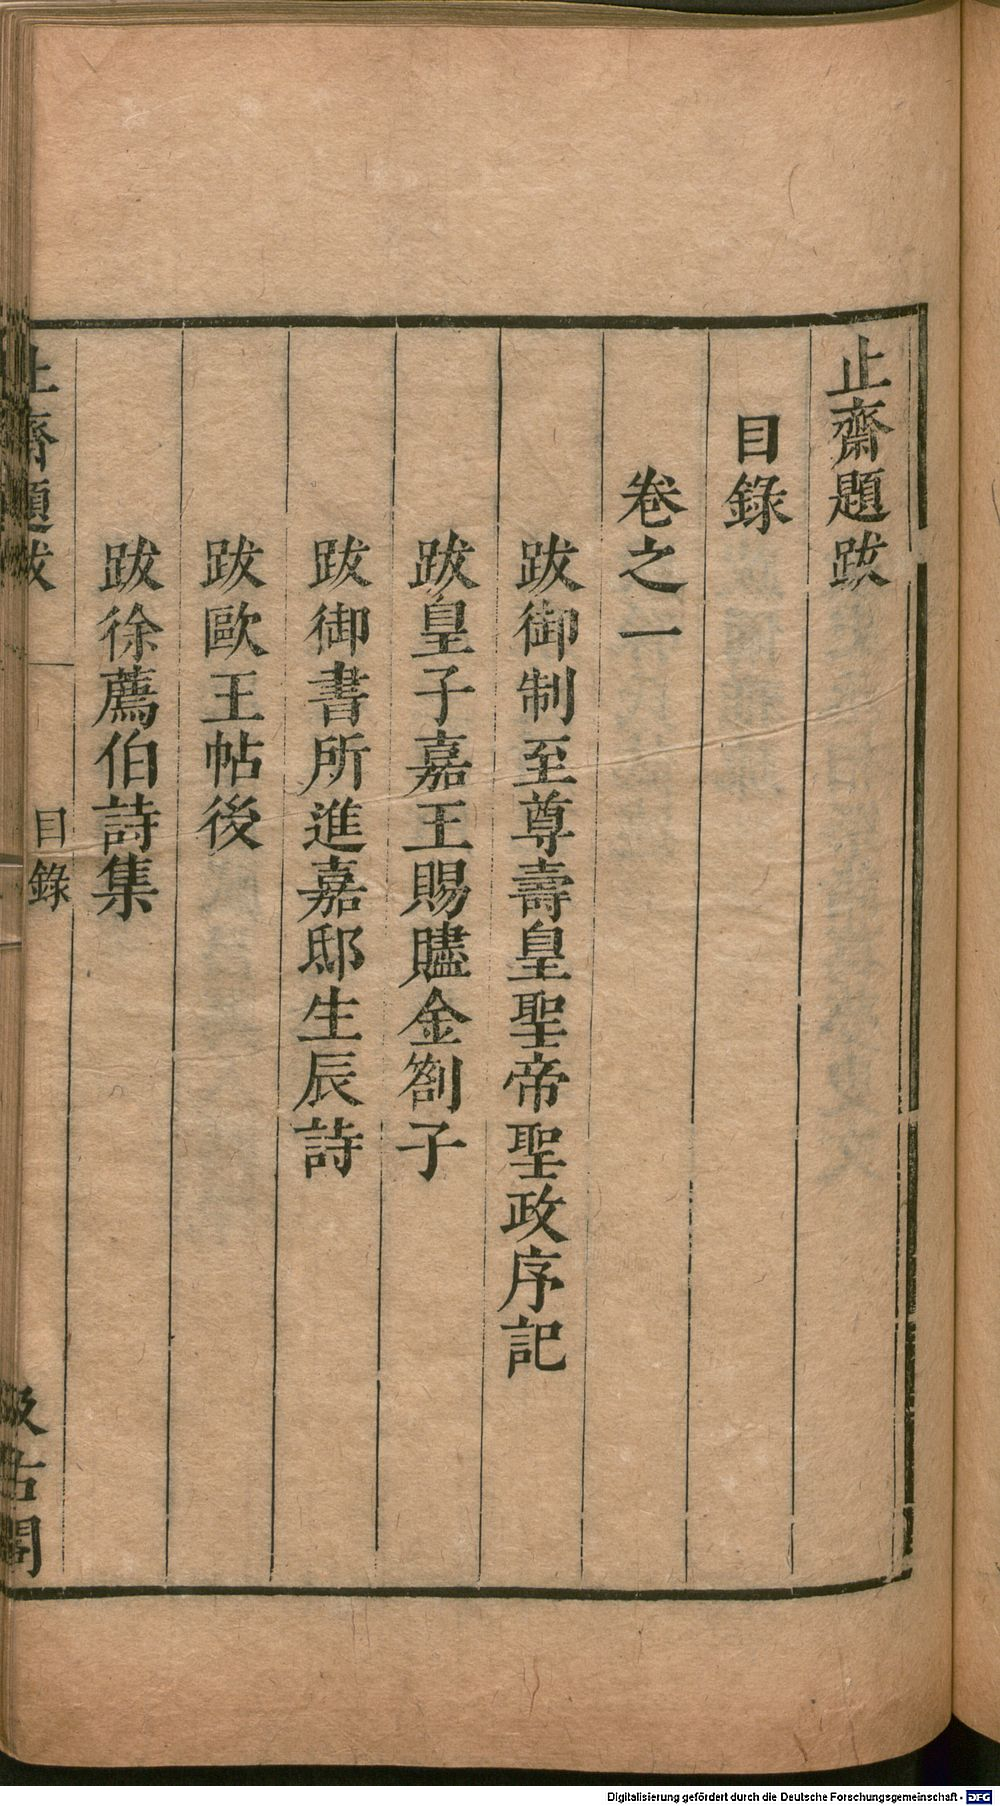 止齋題跋
目錄
卷之一
跋御制至尊壽皇聖帝聖政序記
跋皇子嘉王賜贐金劄子
跋御書所進嘉邸生辰詩
跋歐王帖後
跋徐薦伯詩集
止齋題跋
目錄
汲古閣
Digitalisierung gefördert durch die Deutsche Forschungsgemeinschaft - DFG